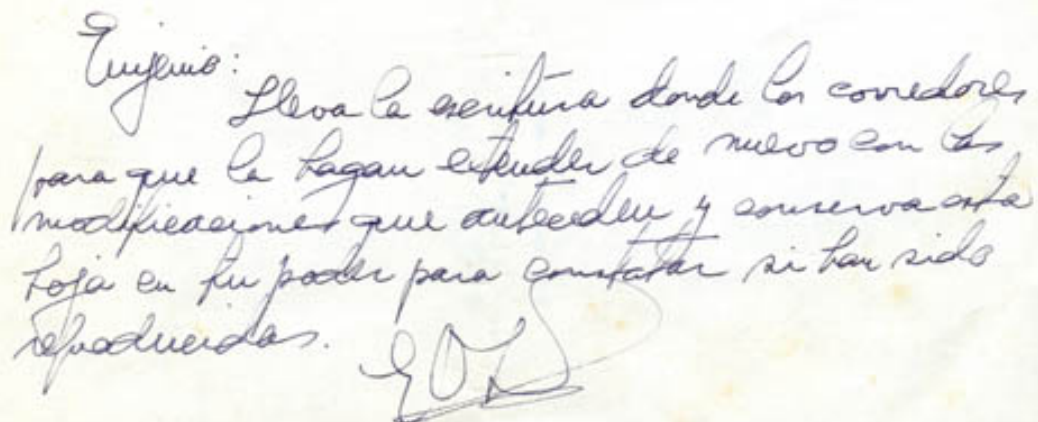 Eugenio:
Lleva la escritura donde los corredores
para que la hagan extender de nuevo con las
modificaciones que anteceden y conserva esta
hoja en tu poder para constatar si han sido
reproducidas.